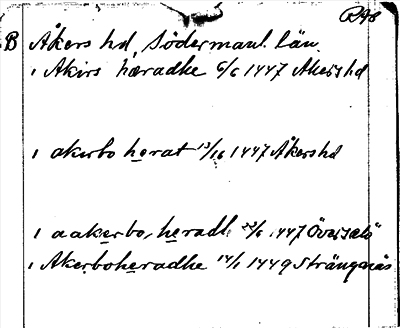 RAö
B Åkers hd, Södermanl. län.
i Akirs hæradhe 6/6 1447 Åkers hd
i akerbo herat 13/16 1447 Åkers hd
i aakerbo, heradh 23/6 1447 Överselö
i Akerboheradhe 14/1 1449 Strängnäs